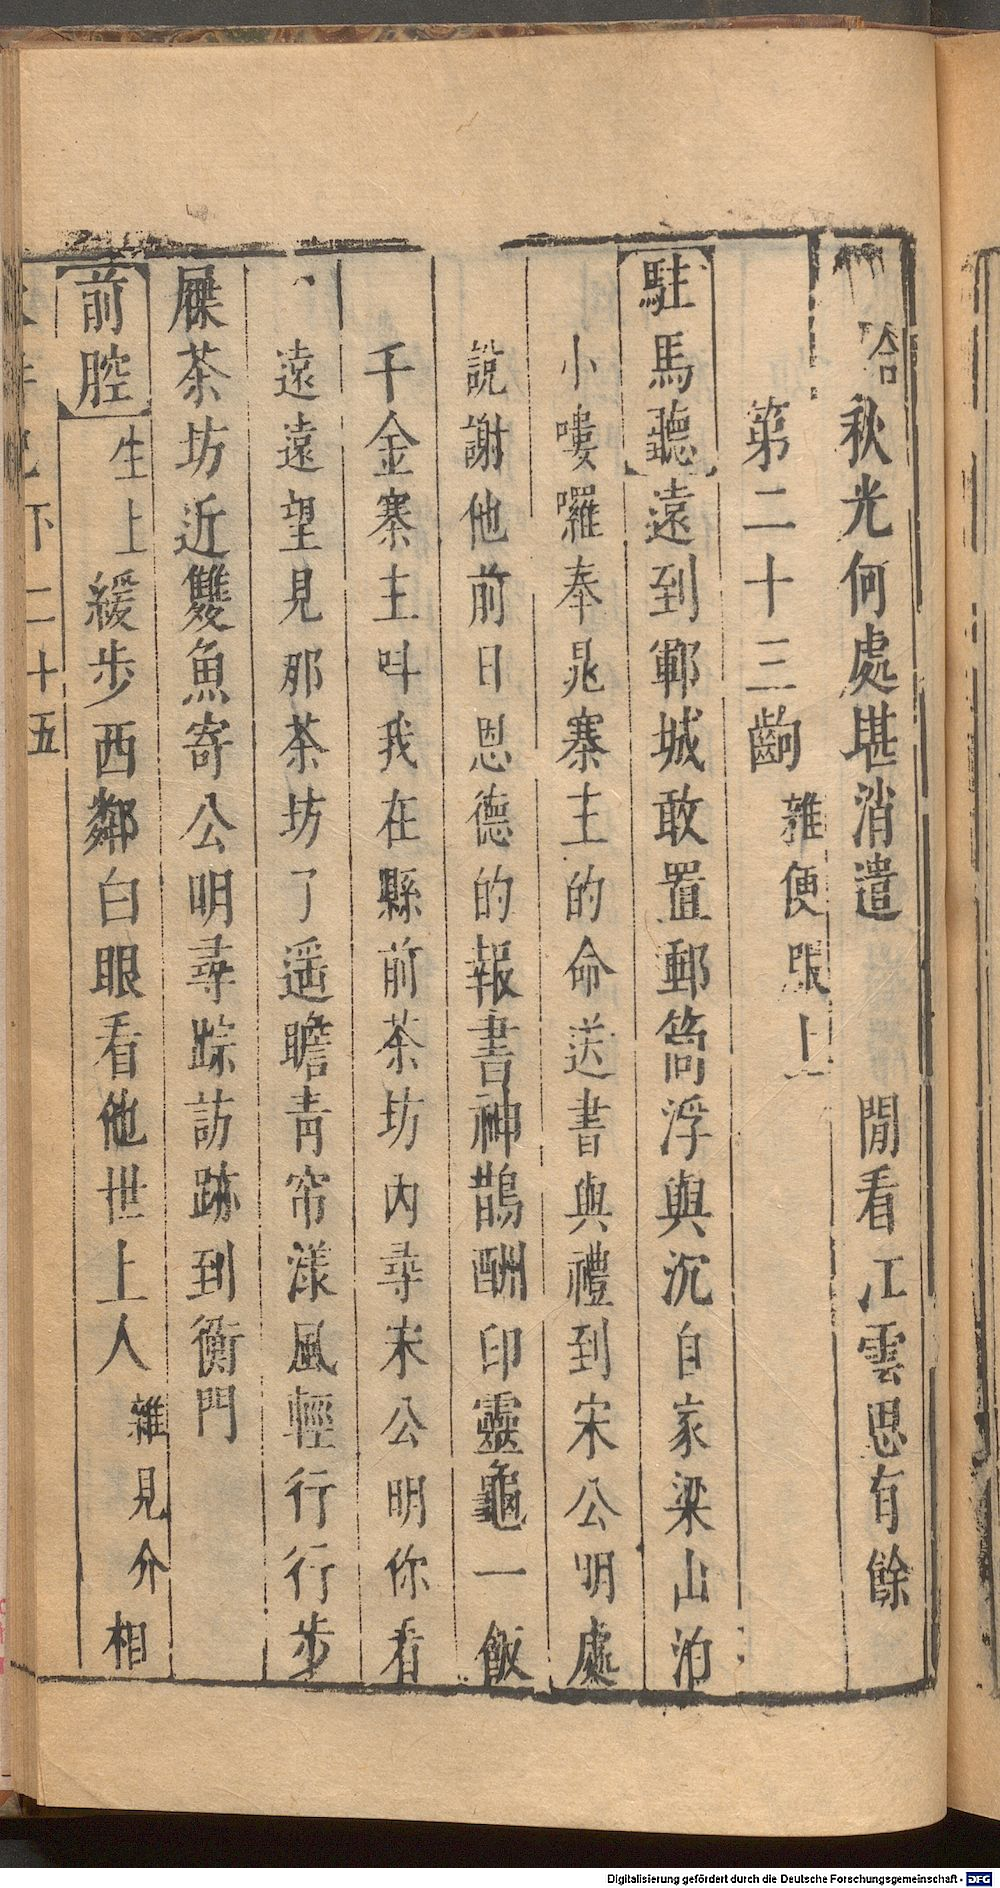 合秋光何處堪消遣　閒看江雲思有餘
第二十三齣　雜便服上
駐馬聽遠到鄆城敢置郵筒浮與沉自家梁山泊
小嘍囉奉晁寨主的命送書與禮到宋公明處
說謝他前日恩德的報書神鵲酬印靈龜一飯
千金寨主呌我在縣前茶坊內尋宋公明你看
遠遠望見那茶坊了遥瞻靑帘漾風輕行行步
屧茶坊近雙魚寄公明尋踪訪跡到衡門
前腔生上緩步西鄰白眼看他世上人雜見介相
記下二十五
Digitalisierung gefördert durch die Deutsche Forschungsgemeinschaft - DFG